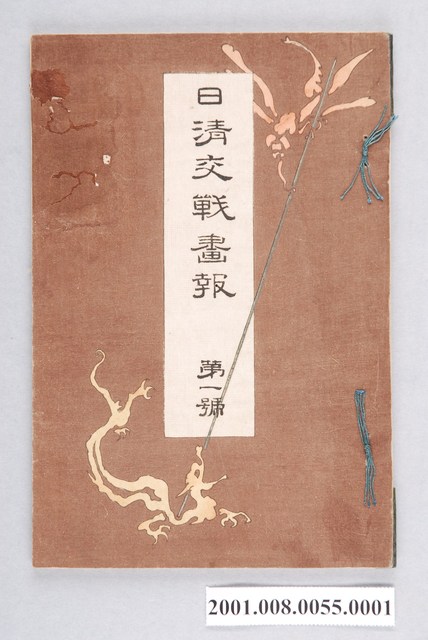 日清交戰畫報
第一號
2001.008.0055.0001